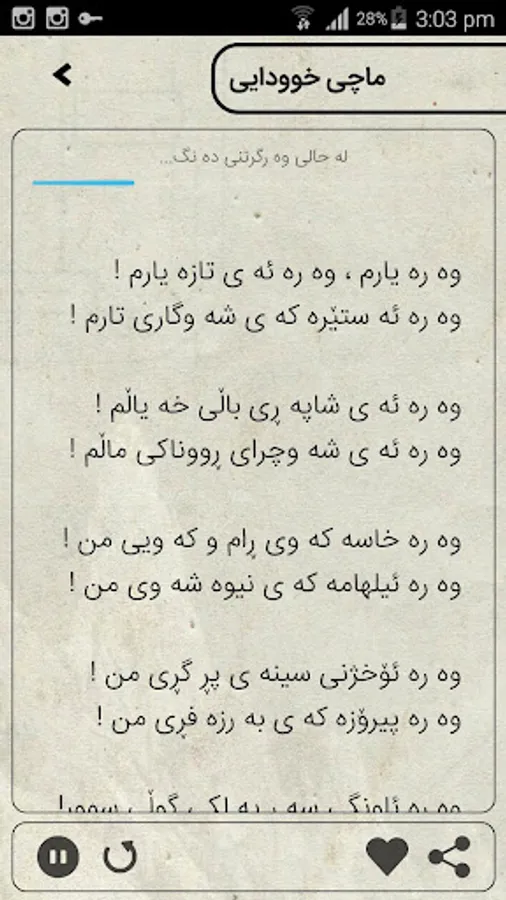 28% 3:03 pm
ماچی خوودایی
له حالی وه رگرتنی ده نگ...
وه ره یارم ، وه ره ئه ی تازه یارم !
وه ره ئه ستێره که ی شه وگاری تارم !
وه ره ئه ی شاپه ڕی باڵی خه یاڵم !
وه ره ئه ی شه وچرای ڕووناکی ماڵم !
وه ره خاسه که وی ڕام و که ویی من !
وه ره ئیلهامه که ی نیوه شه وی من !
وه ره ئۆخژنی سینه ی پڕ گڕی من !
وه ره پیرۆزه که ی به رزه فڕی من !
وه ره ئاونگی سه ر په لکی گوڵی سوور!